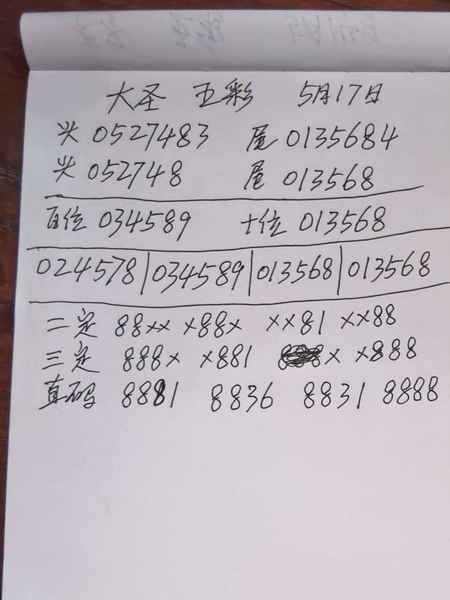 大圣 五彩 5月17日
头 0527483 尾 0135684
头 052748 尾 013568
百位 034589 十位 013568
024578|034589|013568|013568
二定 88×× ×88× ××81 ××88
三定 888× ×881 × ×888
直码 8881 8836 8831 8888